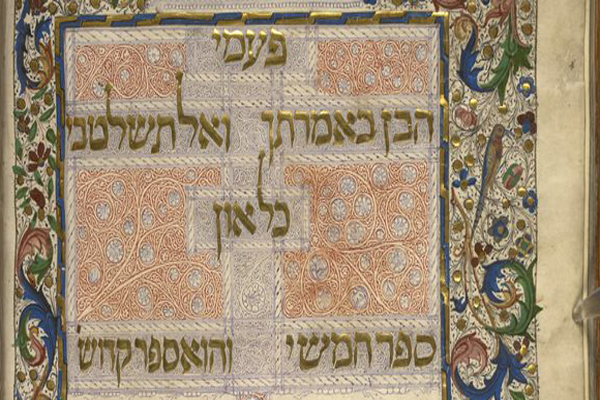 פעמי
הכן באמרתך ואל תשלט בי
כל און
ספר חמישי והוא ספר קדוש